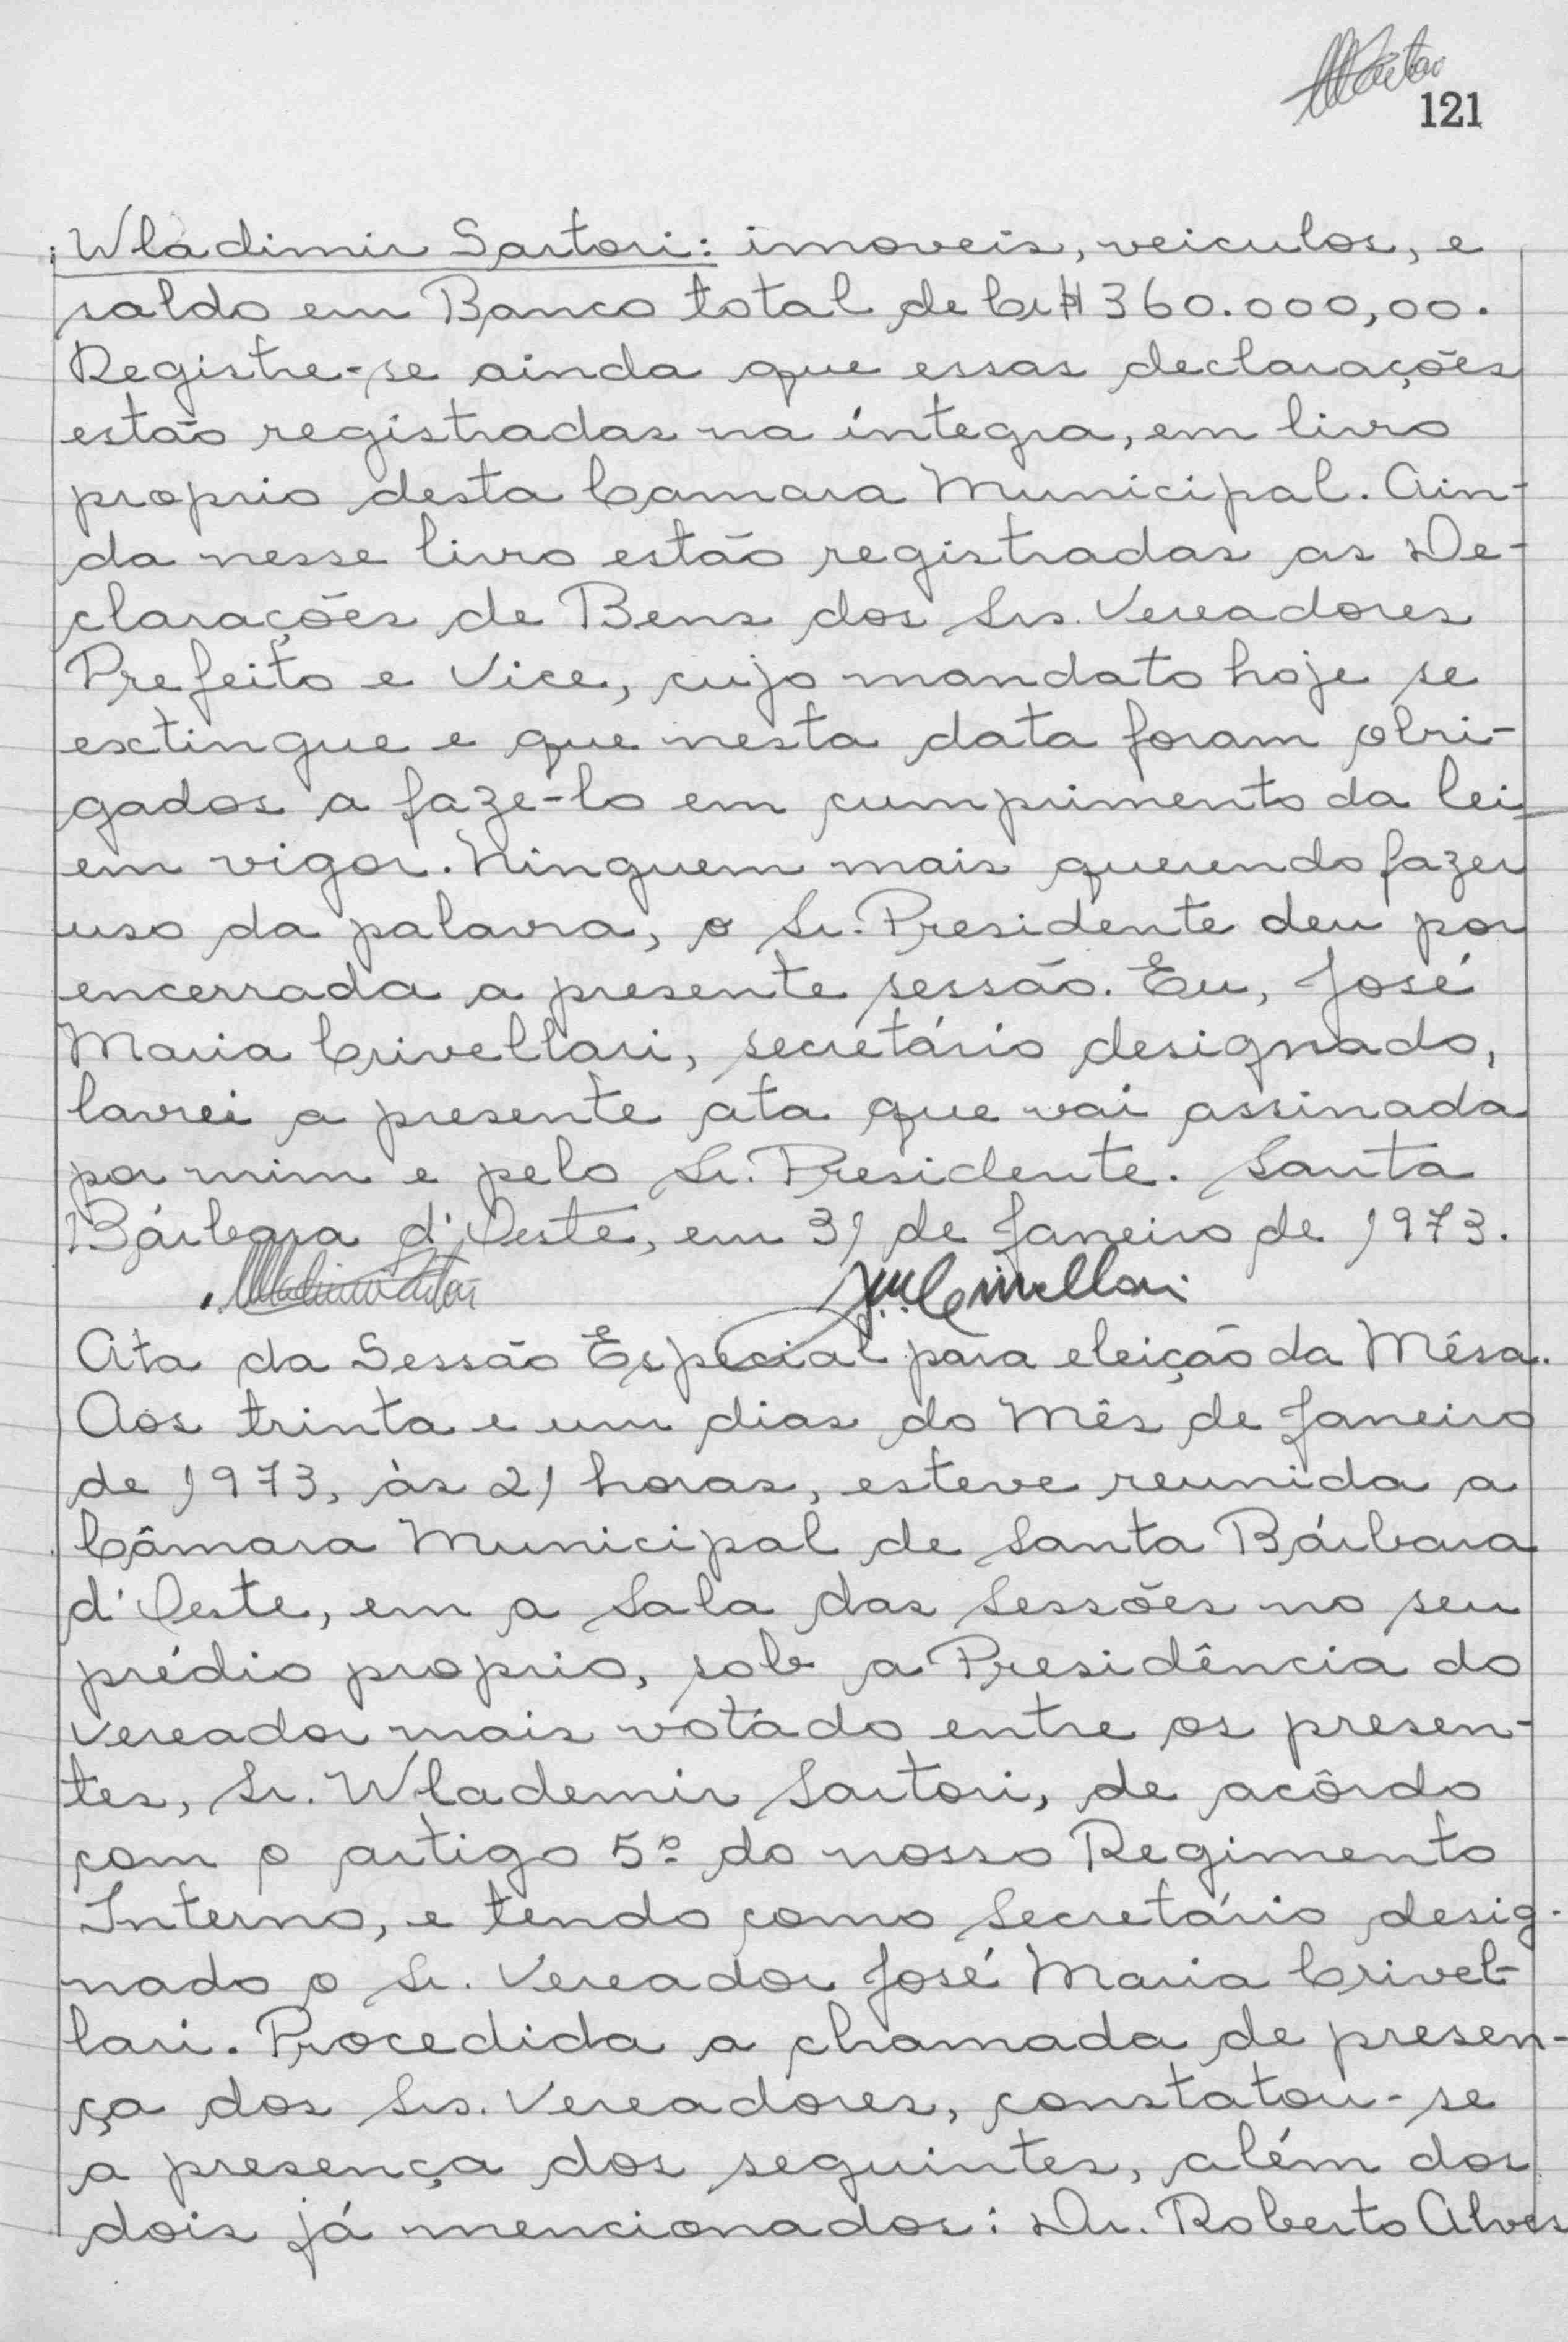 121
Wladimir Sartori: imoveis, veiculos, e
saldo em Banco total de Cr$ 360.000,00.
Registre-se ainda que essas declarações
estão registradas na íntegra, em livro
proprio desta Camara Municipal. Ain-
da nesse livro estão registradas as De-
clarações de Bens dos Srs. Vereadores
Prefeito e Vice, cujo mandato hoje se
extingue e que nesta data foram obri-
gados a faze-lo em cumprimento da lei
em vigor. Ninguem mais querendo fazer
uso da palavra, o Sr. Presidente deu por
encerrada a presente sessão. Eu, José
Maria Crivellari, secretário designado,
lavrei a presente ata que vai assinada
por mim e pelo Sr. Presidente. Santa
Bárbara d'Oeste, em 31 de Janeiro de 1973.
Wladimir Sartori JMCrivellari
Ata da Sessão Especial para eleição da Mêsa.
Aos trinta e um dias do Mês de Janeiro
de 1973, às 21 horas, esteve reunida a
Câmara Municipal de Santa Bárbara
d'Oeste, em a Sala das Sessões no seu
prédio proprio, sob a Presidência do
Vereador mais votado entre os presen-
tes, Sr. Wlademir Sartori, de acôrdo
com o artigo 5º do nosso Regimento
Interno, e tendo como Secretário desig-
nado o Sr. Vereador José Maria Crivel-
lari. Procedida a chamada de presen-
ça dos Srs. Vereadores, constatou-se
a presença dos seguintes, além dos
dois já mencionados: Dr. Roberto Alves